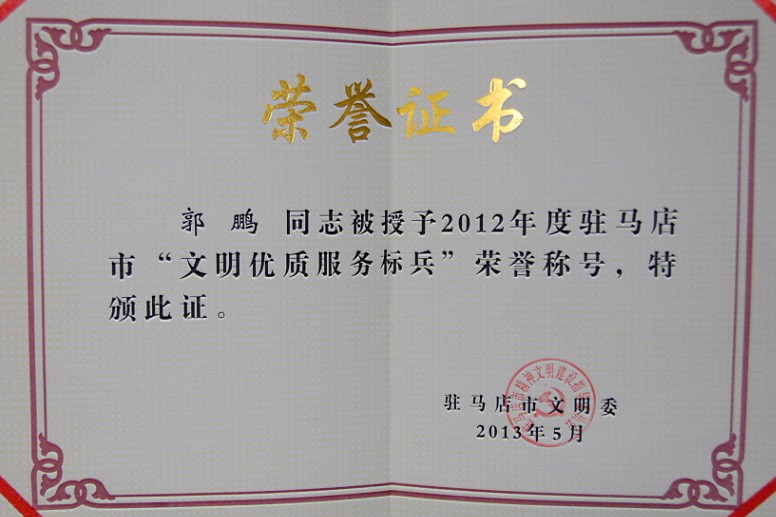 荣誉证书
郭 鹏 同志被授予2012年度驻马店
市“文明优质服务标兵”荣誉称号，特
颁此证。
驻马店市文明委
2013年5月